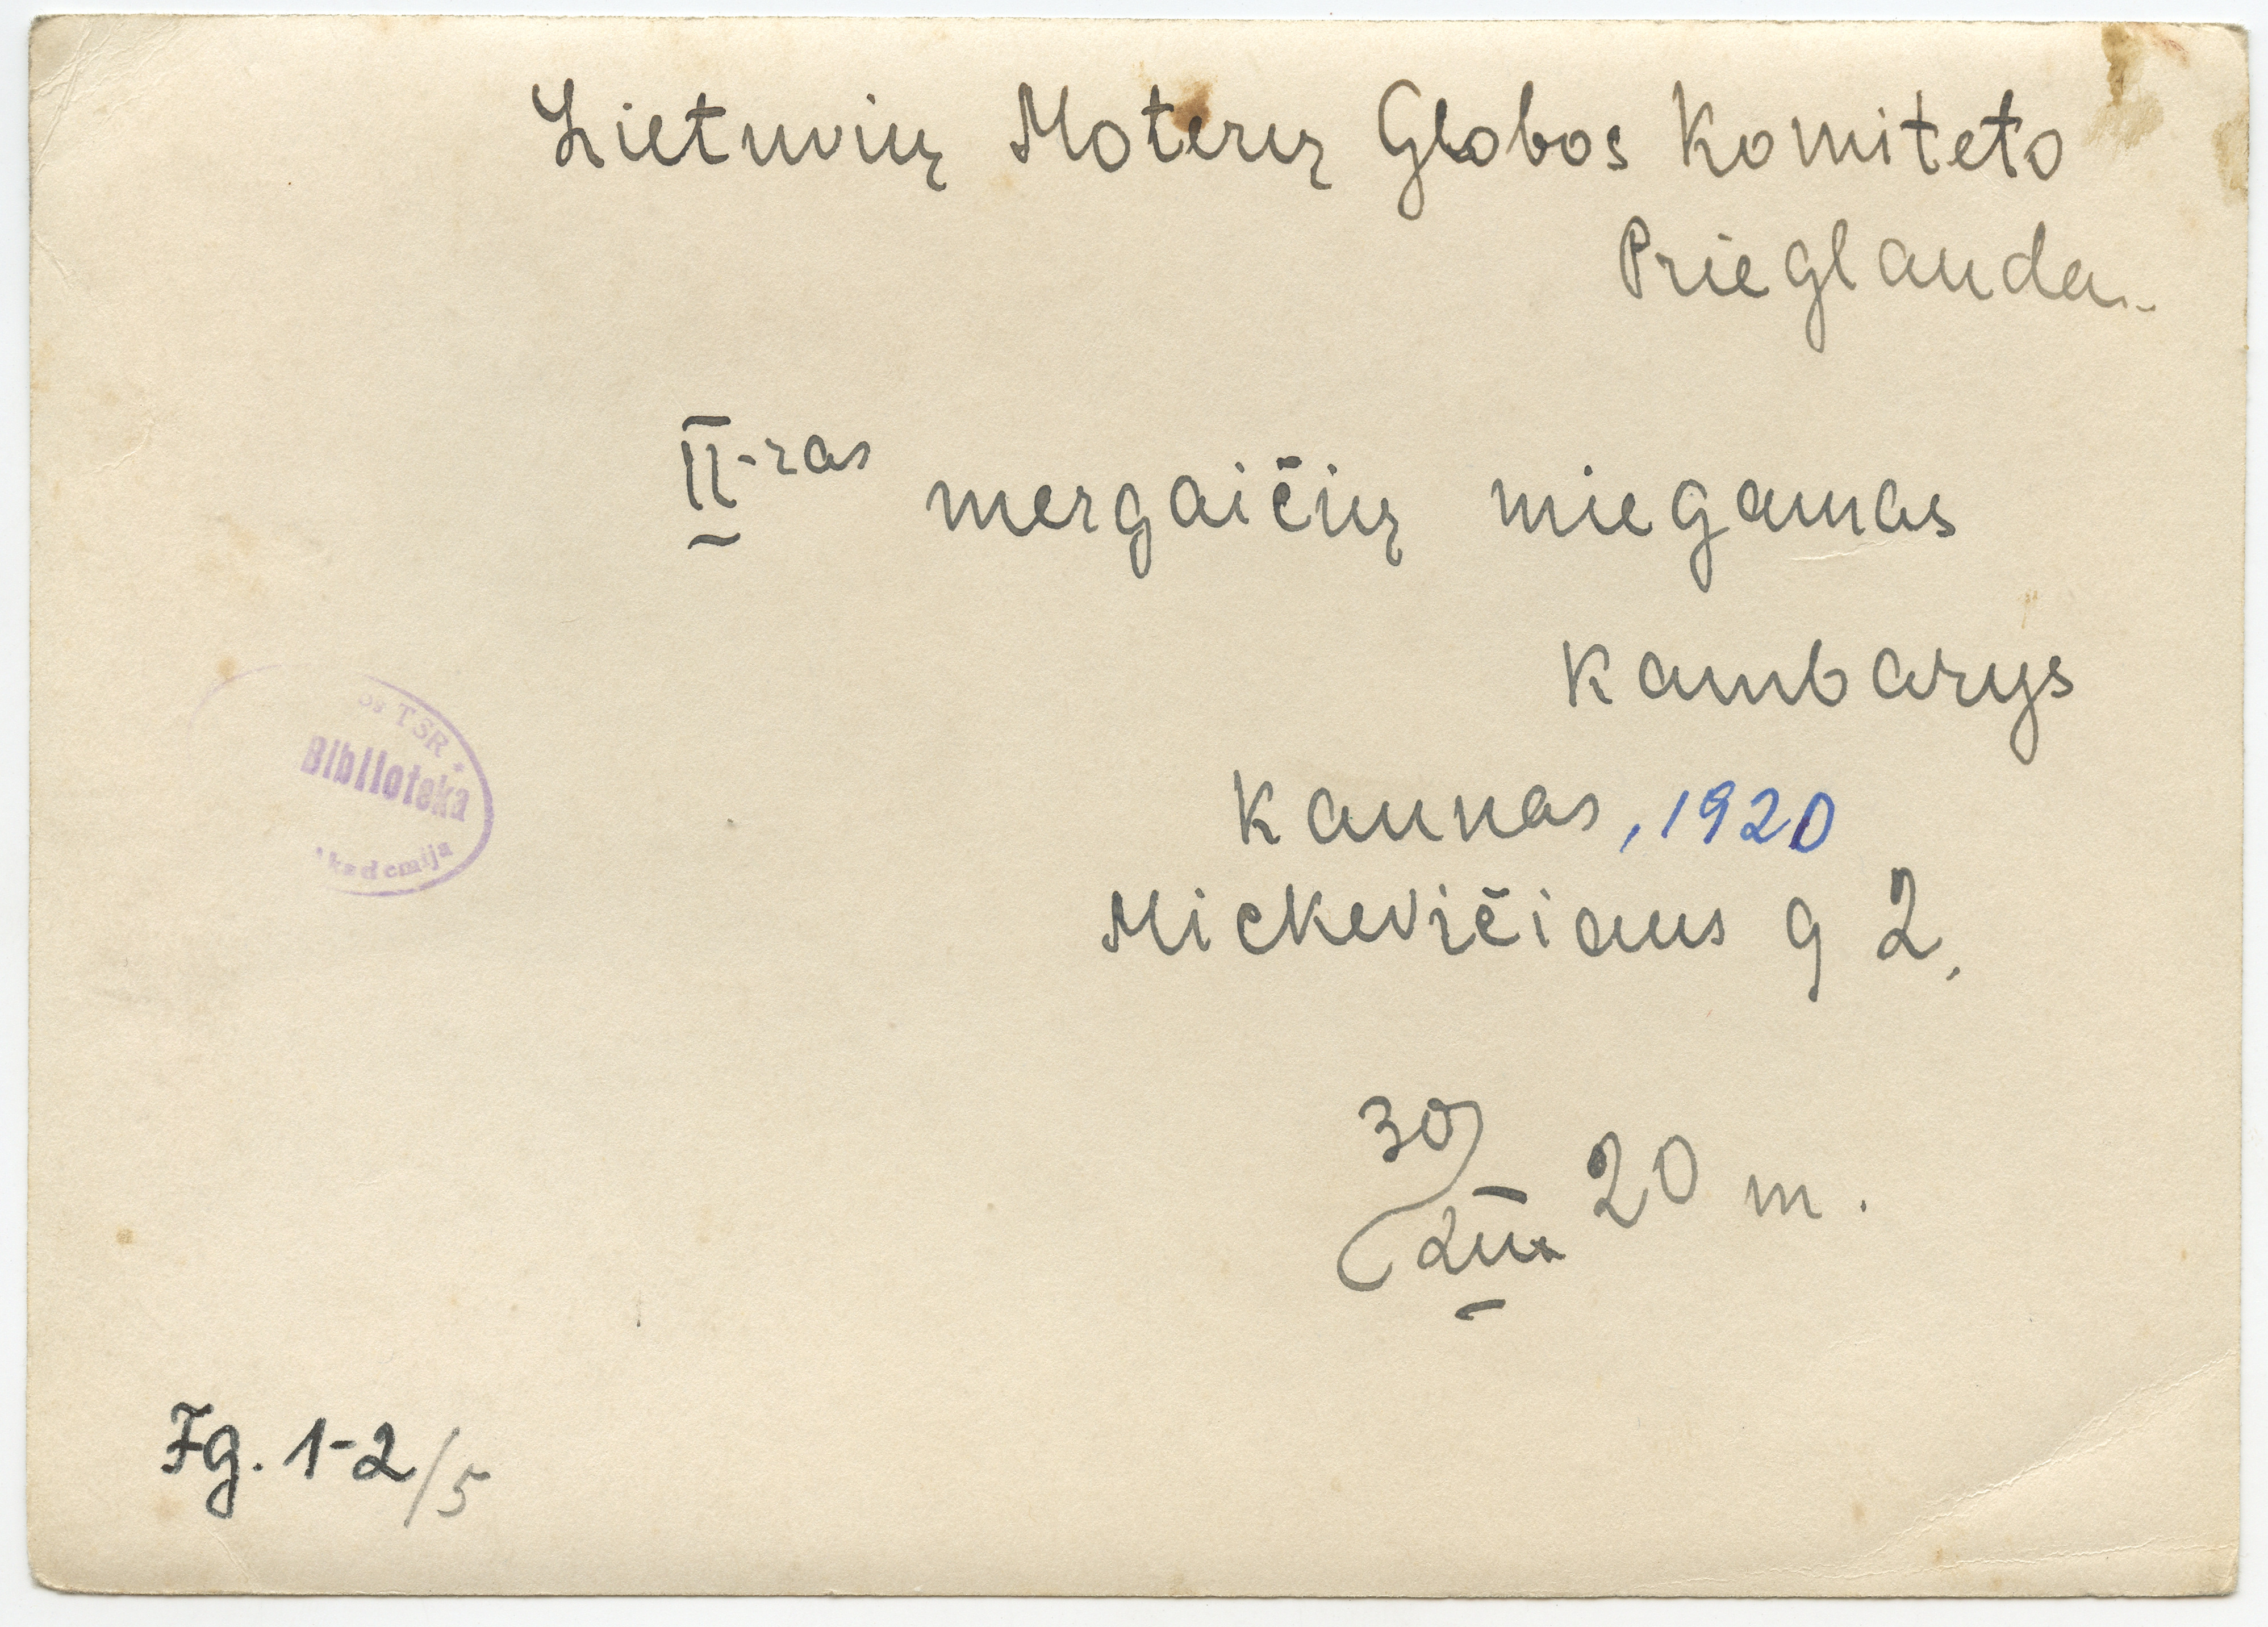 Lietuvių Moterų Globos Komiteto
Prieglauda..
II-ras mergaičių miegamas
kambarys
Kaunas, 1920
Mickevičiaus g 2.
30
20 m.
TSR
Biblioteka
kademija
Fg. 1-2/5